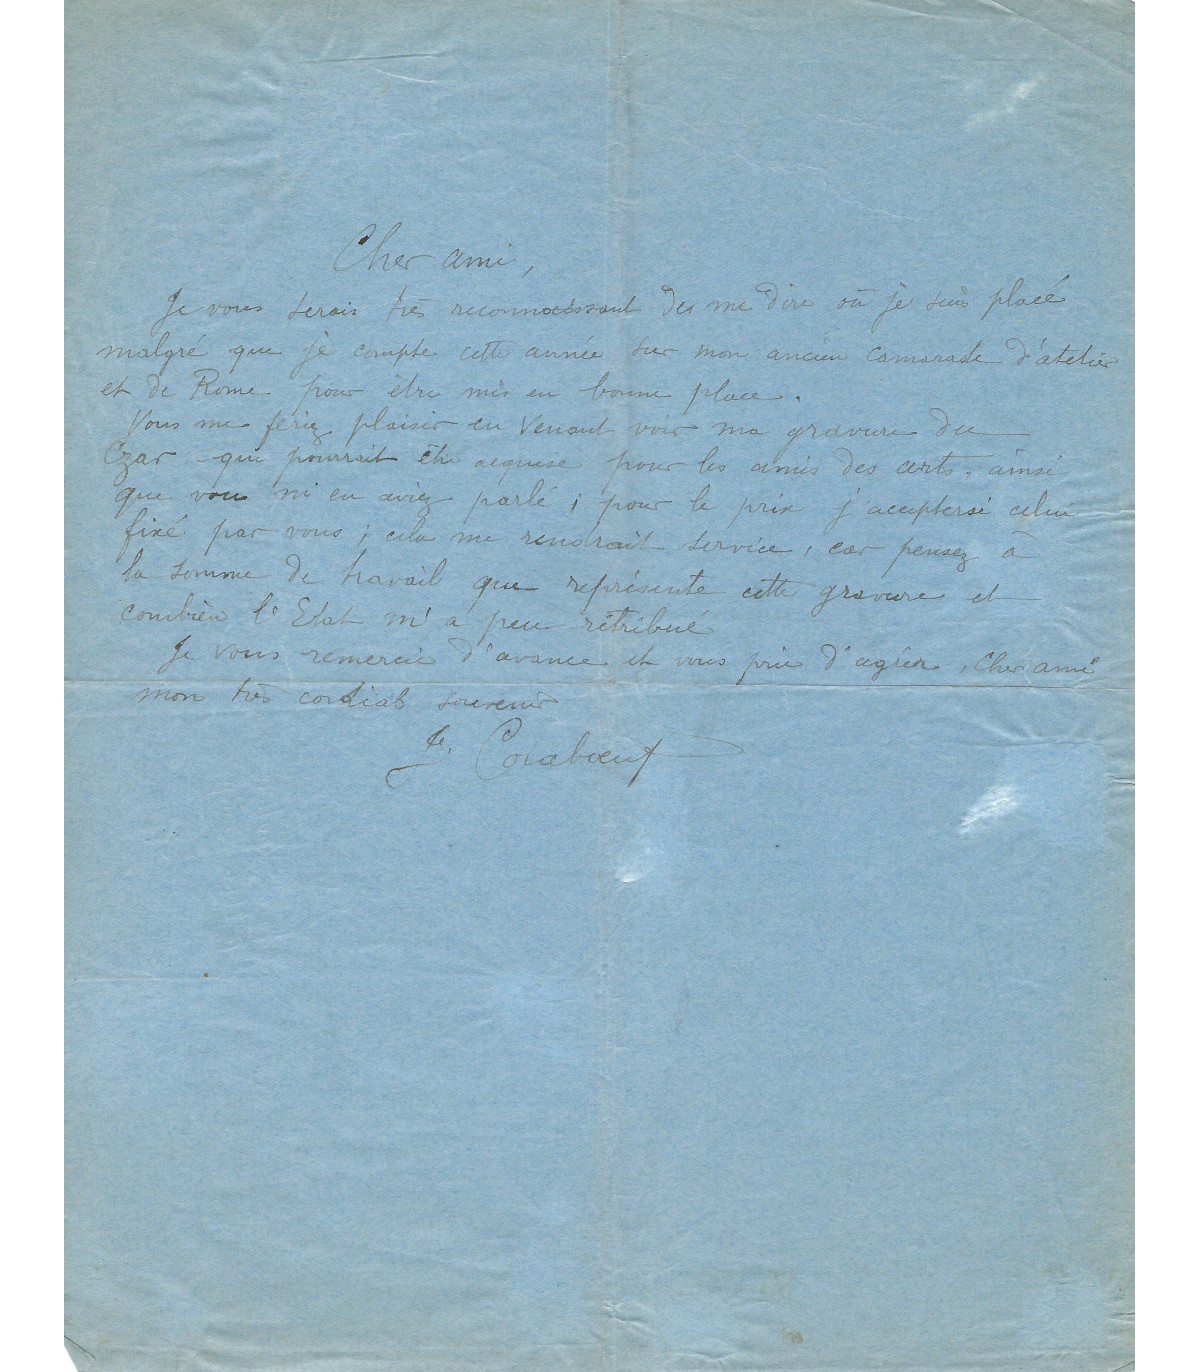 Cher ami,
Je vous serais très reconnaissant de me dire où je suis placé
malgré que je compte cette année sur mon ancien camarade d'atelier
et de Rome pour être mis en bonne place.
Vous me feriez plaisir en venant voir ma gravure du
Czar qui pourrait être acquise pour les amis des arts. ainsi
que vous m'en aviez parlé ; pour le prix j'accepterai celui
fixé par vous ; cela me rendrait service, car pensez à
la somme de travail que représente cette gravure et
combien l'Etat m'a peu rétribué
Je vous remercie d'avance et vous prie d'agréer, cher ami
mon très cordial souvenir
J. Coraboeuf